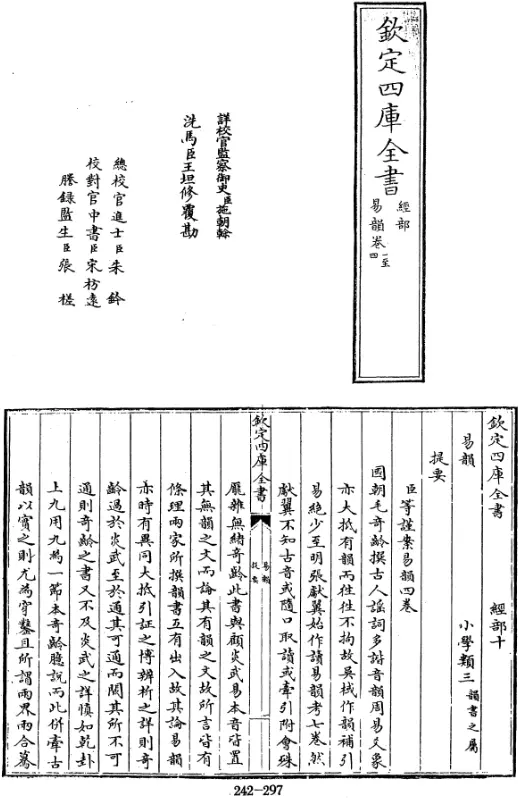 欽定四庫全書
經部
易韻卷一至四
詳校官監察御史臣施朝幹
洗馬臣王坦修覆勘
總校官進士臣朱鈐
校對官中書臣宋枋遠
謄錄監生臣張梴
欽定四庫全書 經部十
易韻 小學類三韻書之屬
提要
臣等謹案易韻四卷
國朝毛奇齡撰古人謡詞多諧音韻周易爻象
亦大抵有韻而往往不拘故吳棫作韻補引
易絶少至明張獻翼始作讀易韻考七卷然
獻翼不知古音或隨口取讀或牽引附會殊
欽定四庫全書
易韻
提要
厖雜無緒奇齡此書與顧炎武易本音皆置
其無韻之文而論其有韻之文故所言皆有
條理兩家所撰韻書互有出入故其論易韻
亦時有異同大抵引証之博辨析之詳則奇
齡過於炎武至於通其可通而闕其所不可
通則奇齡之書又不及炎武之詳慎如乾卦
上九用九為一節本奇齡臆說而此併牽古
韻以實之則尤為穿鑿且所謂兩界兩合驀
242-297